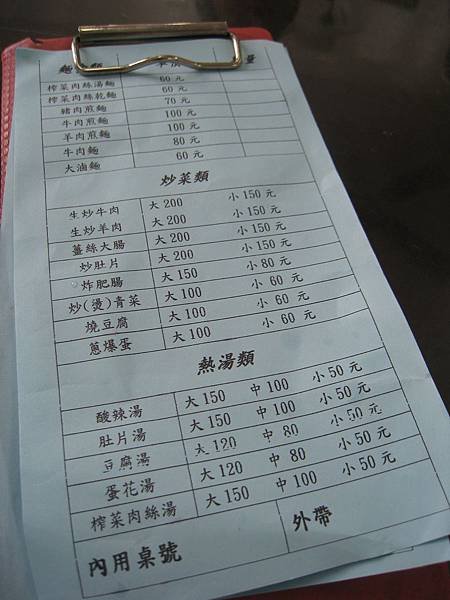 麵 類 量
榨菜肉絲湯麵 60元
榨菜肉絲乾麵 60元
豬肉煎麵 70元
牛肉煎麵 100元
羊肉煎麵 100元
牛肉麵 80元
大滷麵 60元
炒菜類
生炒牛肉 大200 小150元
生炒羊肉 大200 小150元
薑絲大腸 大200 小150元
炒肚片 大200 小150元
炸肥腸 大150 小80元
炒(燙)青菜 大100 小 60元
燒豆腐 大100 小 60元
蔥爆蛋 大100 小 60元
熱湯類
酸辣湯 大150 中100 小50元
肚片湯 大150 中100 小50元
豆腐湯 大120 中 80 小50元
蛋花湯 大120 中 80 小50元
榨菜肉絲湯 大150 中100 小50元
內用桌號 外帶